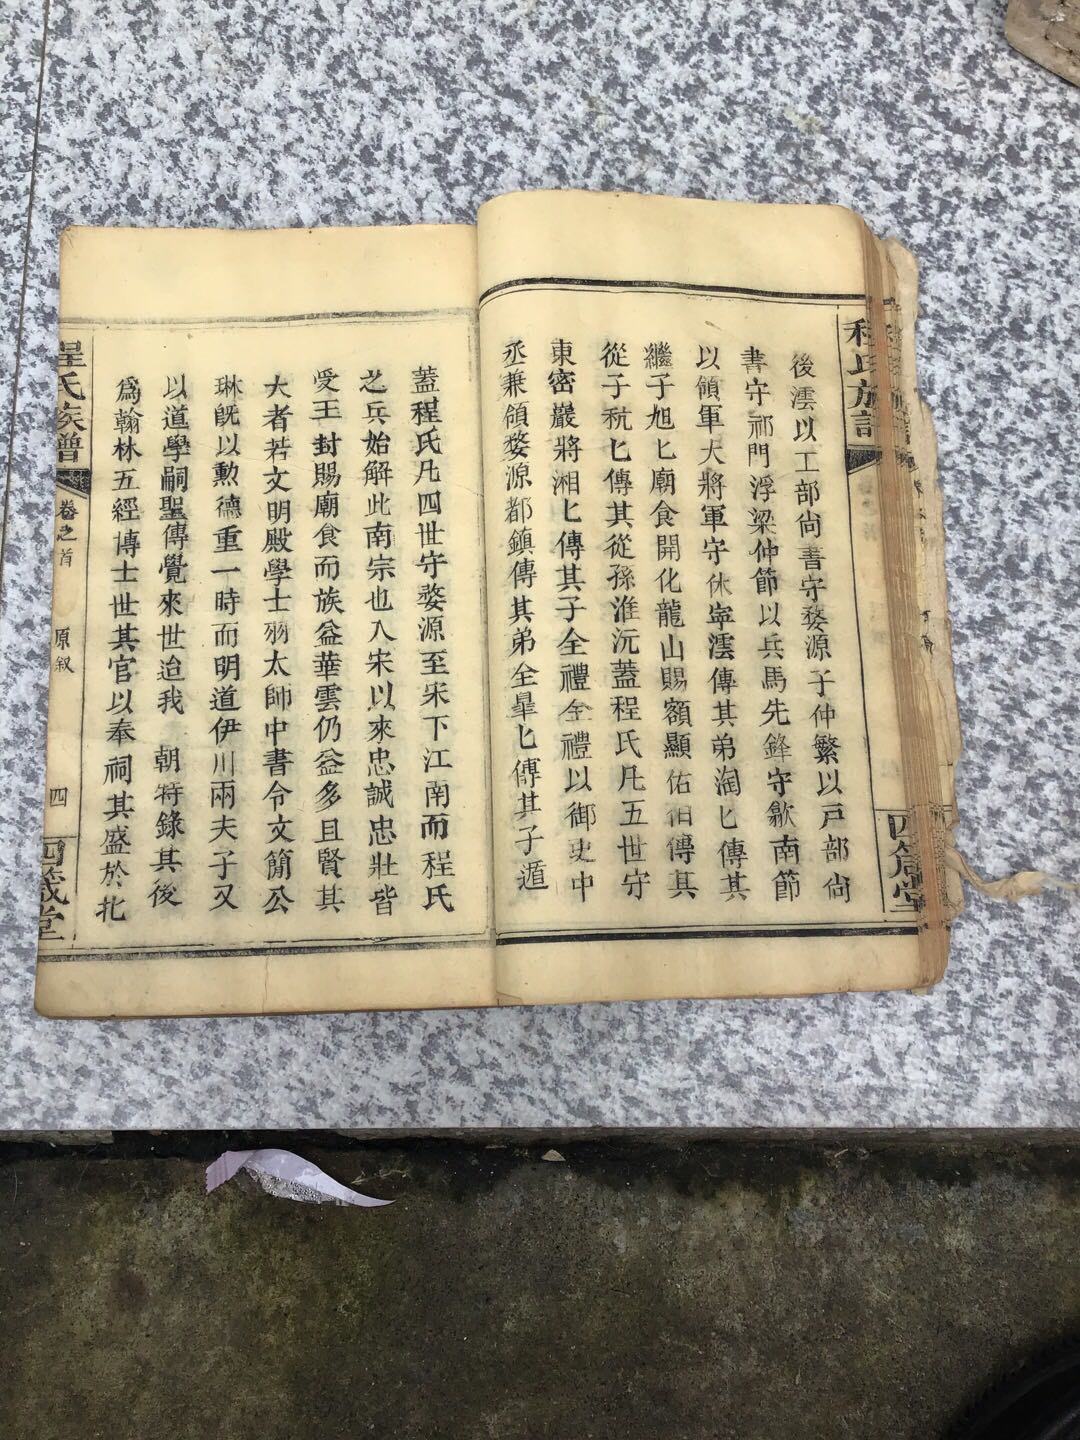 程氏族譜
四箴堂
後澐以工部尙書守婺源子仲繁以戸部尙
書守祁門浮梁仲節以兵馬先鋒守歙南節
以領軍大將軍守休寧澐傳其弟淘匕傳其
繼子旭匕廟食開化龍山賜額顯佑旭傳其
從子秔匕傳其從孫淮沅蓋程氏凡五世守
東密巖將湘匕傳其子全禮全禮以御史中
丞兼領婺源都鎮傳其弟全臯匕傳其子遁
蓋程氏凡四世守婺源至宋下江南而程氏
之兵始解此南宗也入宋以來忠誠忠壯皆
受王封賜廟食而族益華雲仍益多且賢其
大者若文明殿學士羽太師中書令文簡公
琳旣以勳德重一時而明道伊川兩夫子又
以道學嗣聖傳覺來世迨我 朝特錄其後
爲翰林五經博士世其官以奉祠其盛於北
程氏族譜
卷之首
原叙
四
四箴堂